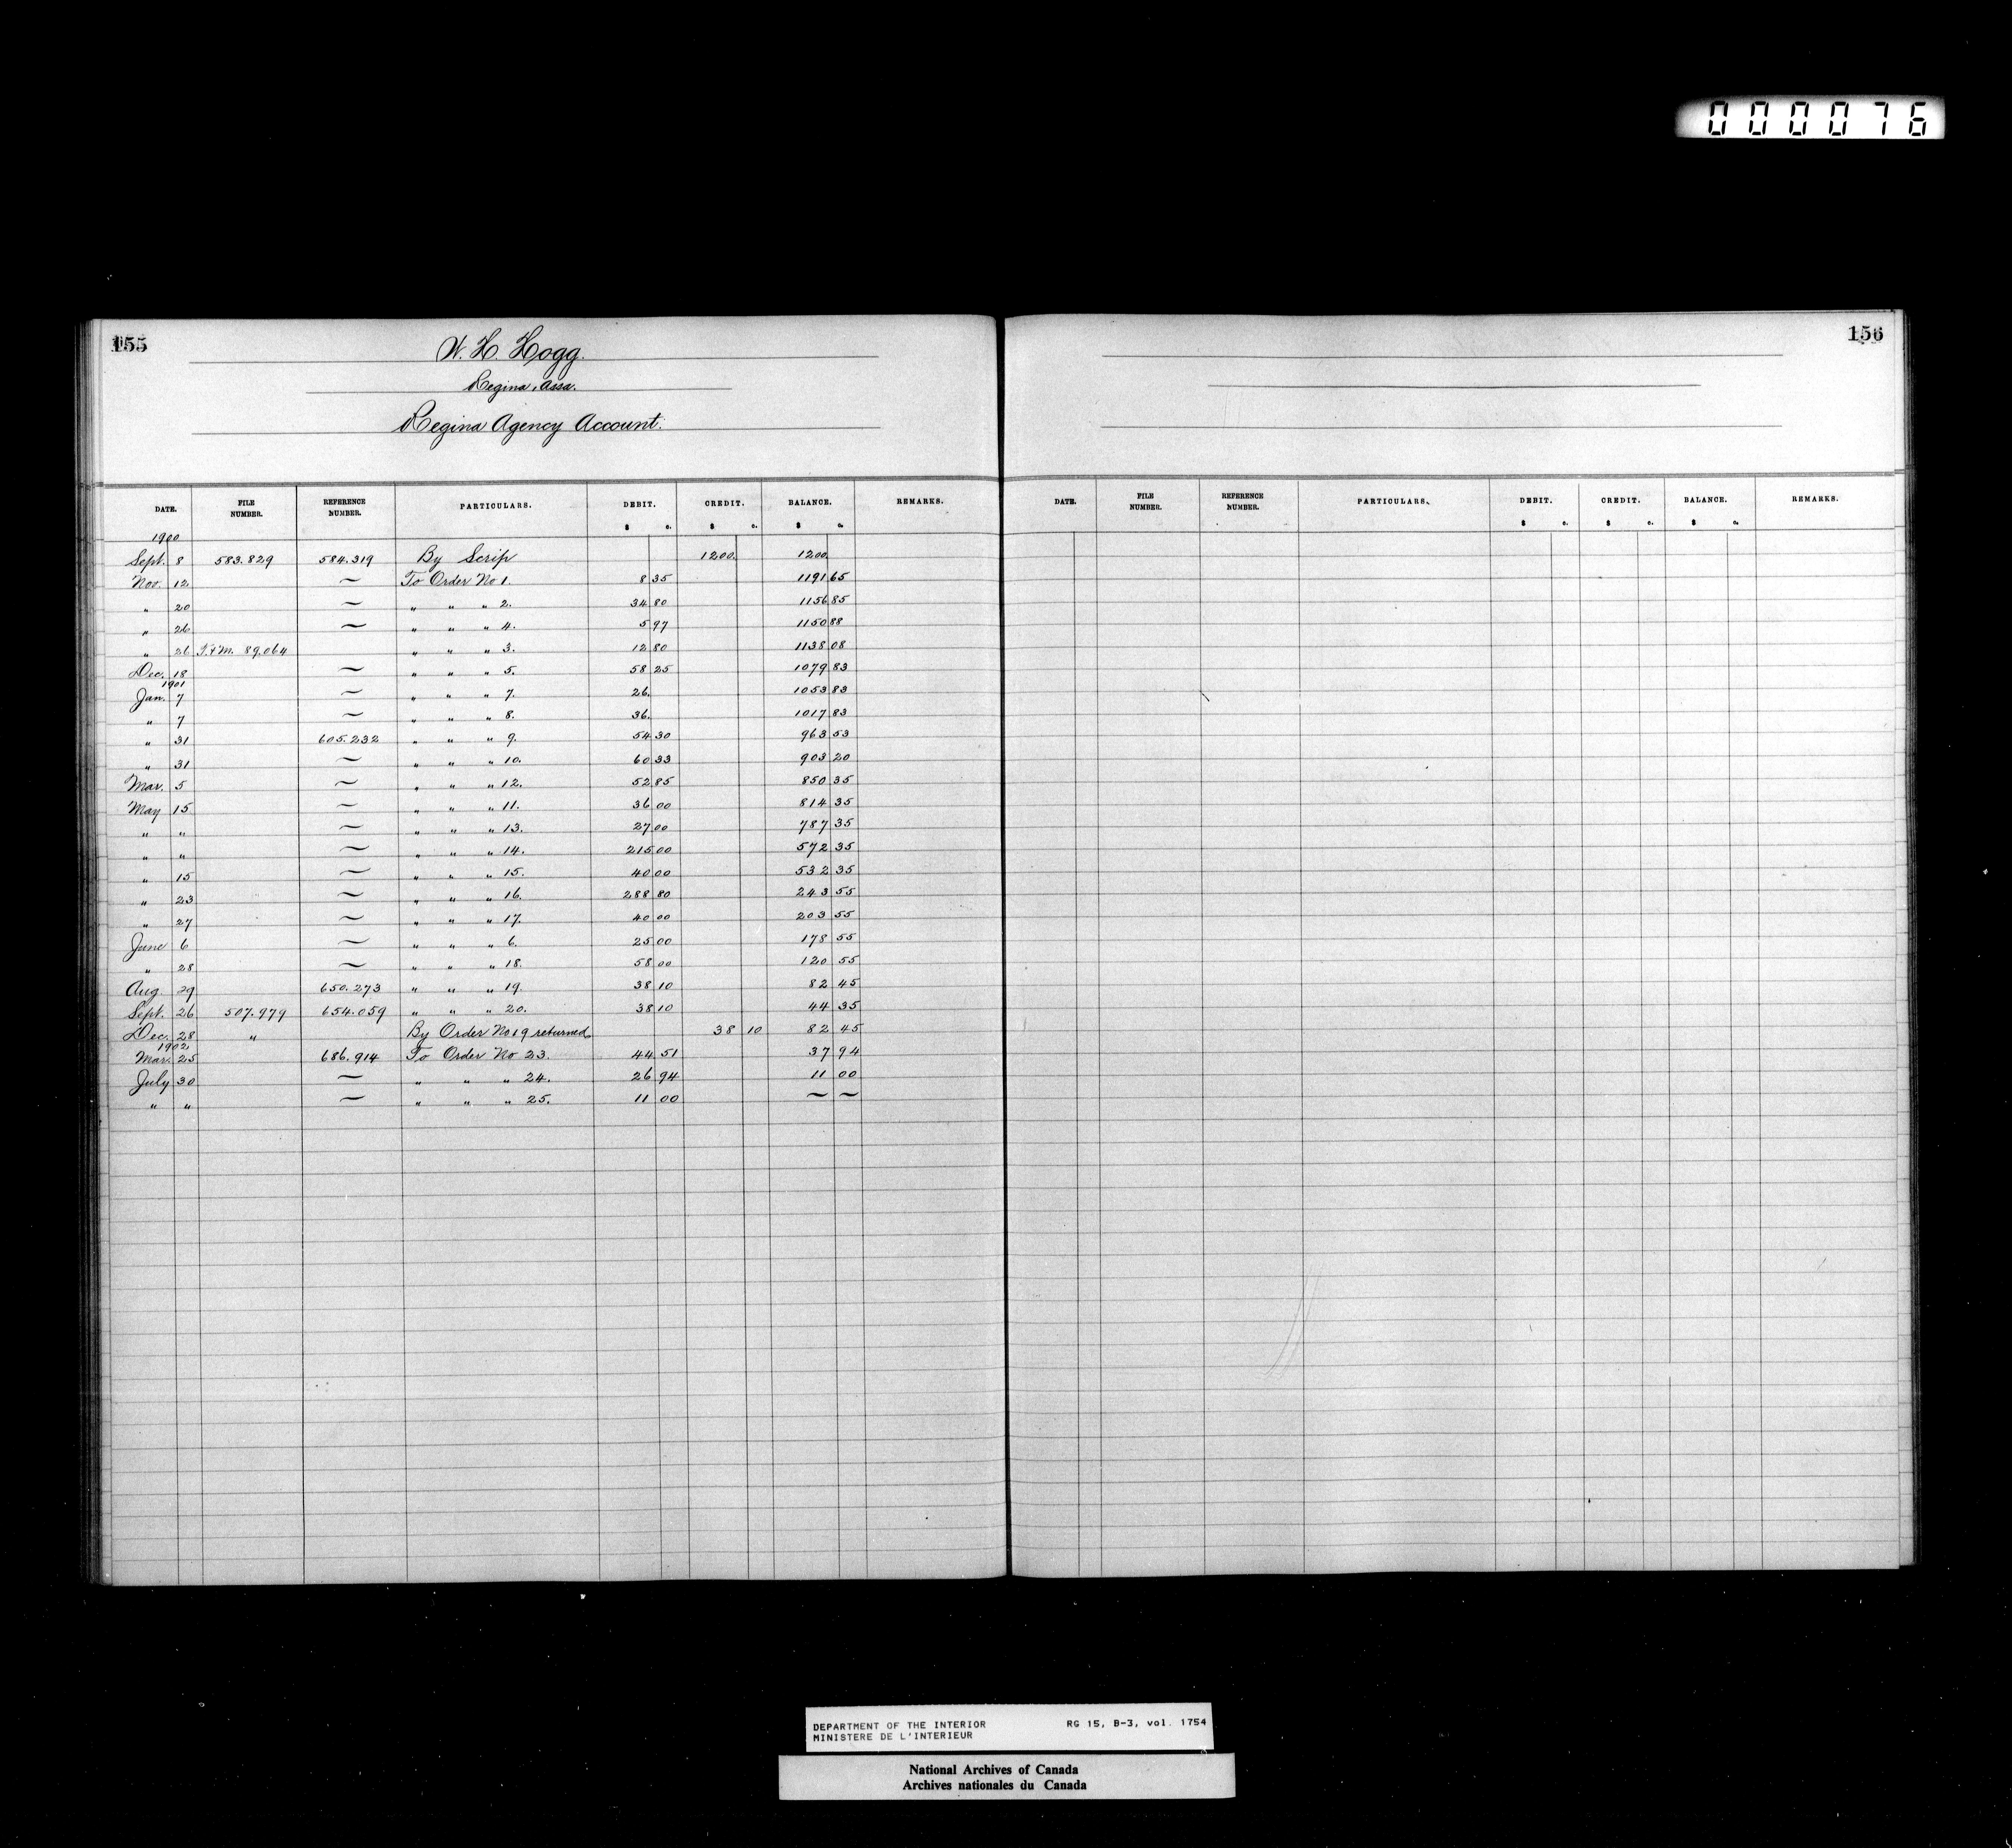 000076
155
W. H. Hogg.
Regina, Assa.
Regina Agency Account.
DATE. FILE NUMBER. REFERENCE NUMBER. PARTICULARS. DEBIT. CREDIT. BALANCE. REMARKS.
$ c. $ c. $ c.
1900
Sept. 8 583.829 584.319 By Scrip 1200. 1200.
Nov. 12 ~ To Order No 1. 8 35 1191 65
" 20 ~ " " " 2. 34 80 1156 85
" 26 ~ " " " 4. 5 97 1150 88
" 26 T.&M. 89.064 " " " 3. 12 80 1138 08
Dec. 18 ~ " " " 5. 58 25 1079 83
1901
Jan. 7 ~ " " " 7. 26. 1053 83
" 7 ~ " " " 8. 36. 1017 83
" 31 605.232 " " " 9. 54 30 963 53
" 31 ~ " " " 10. 60 33 903 20
Mar. 5 ~ " " " 12. 52 85 850 35
May 15 ~ " " " 11. 36 00 814 35
" " ~ " " " 13. 27 00 787 35
" " ~ " " " 14. 215 00 572 35
" 15 ~ " " " 15. 40 00 532 35
" 23 ~ " " " 16. 288 80 243 55
" 27 ~ " " " 17. 40 00 203 55
June 6 ~ " " " 6. 25 00 178 55
" 28 ~ " " " 18. 58 00 120 55
Aug. 29 650.273 " " " 19. 38 10 82 45
Sept. 26 507.979 654.059 " " " 20. 38 10 44 35
Dec. 28 " By Order No 19 returned 38 10 82 45
1902
Mar. 25 686.914 To Order No 23. 44 51 37 94
July 30 ~ " " " 24. 26 94 11 00
" " ~ " " " 25. 11 00 ~ ~
156
DATE. FILE NUMBER. REFERENCE NUMBER. PARTICULARS. DEBIT. CREDIT. BALANCE. REMARKS.
$ c. $ c. $ c.
DEPARTMENT OF THE INTERIOR RG 15, B-3, vol. 1754
MINISTERE DE L'INTERIEUR
National Archives of Canada
Archives nationales du Canada